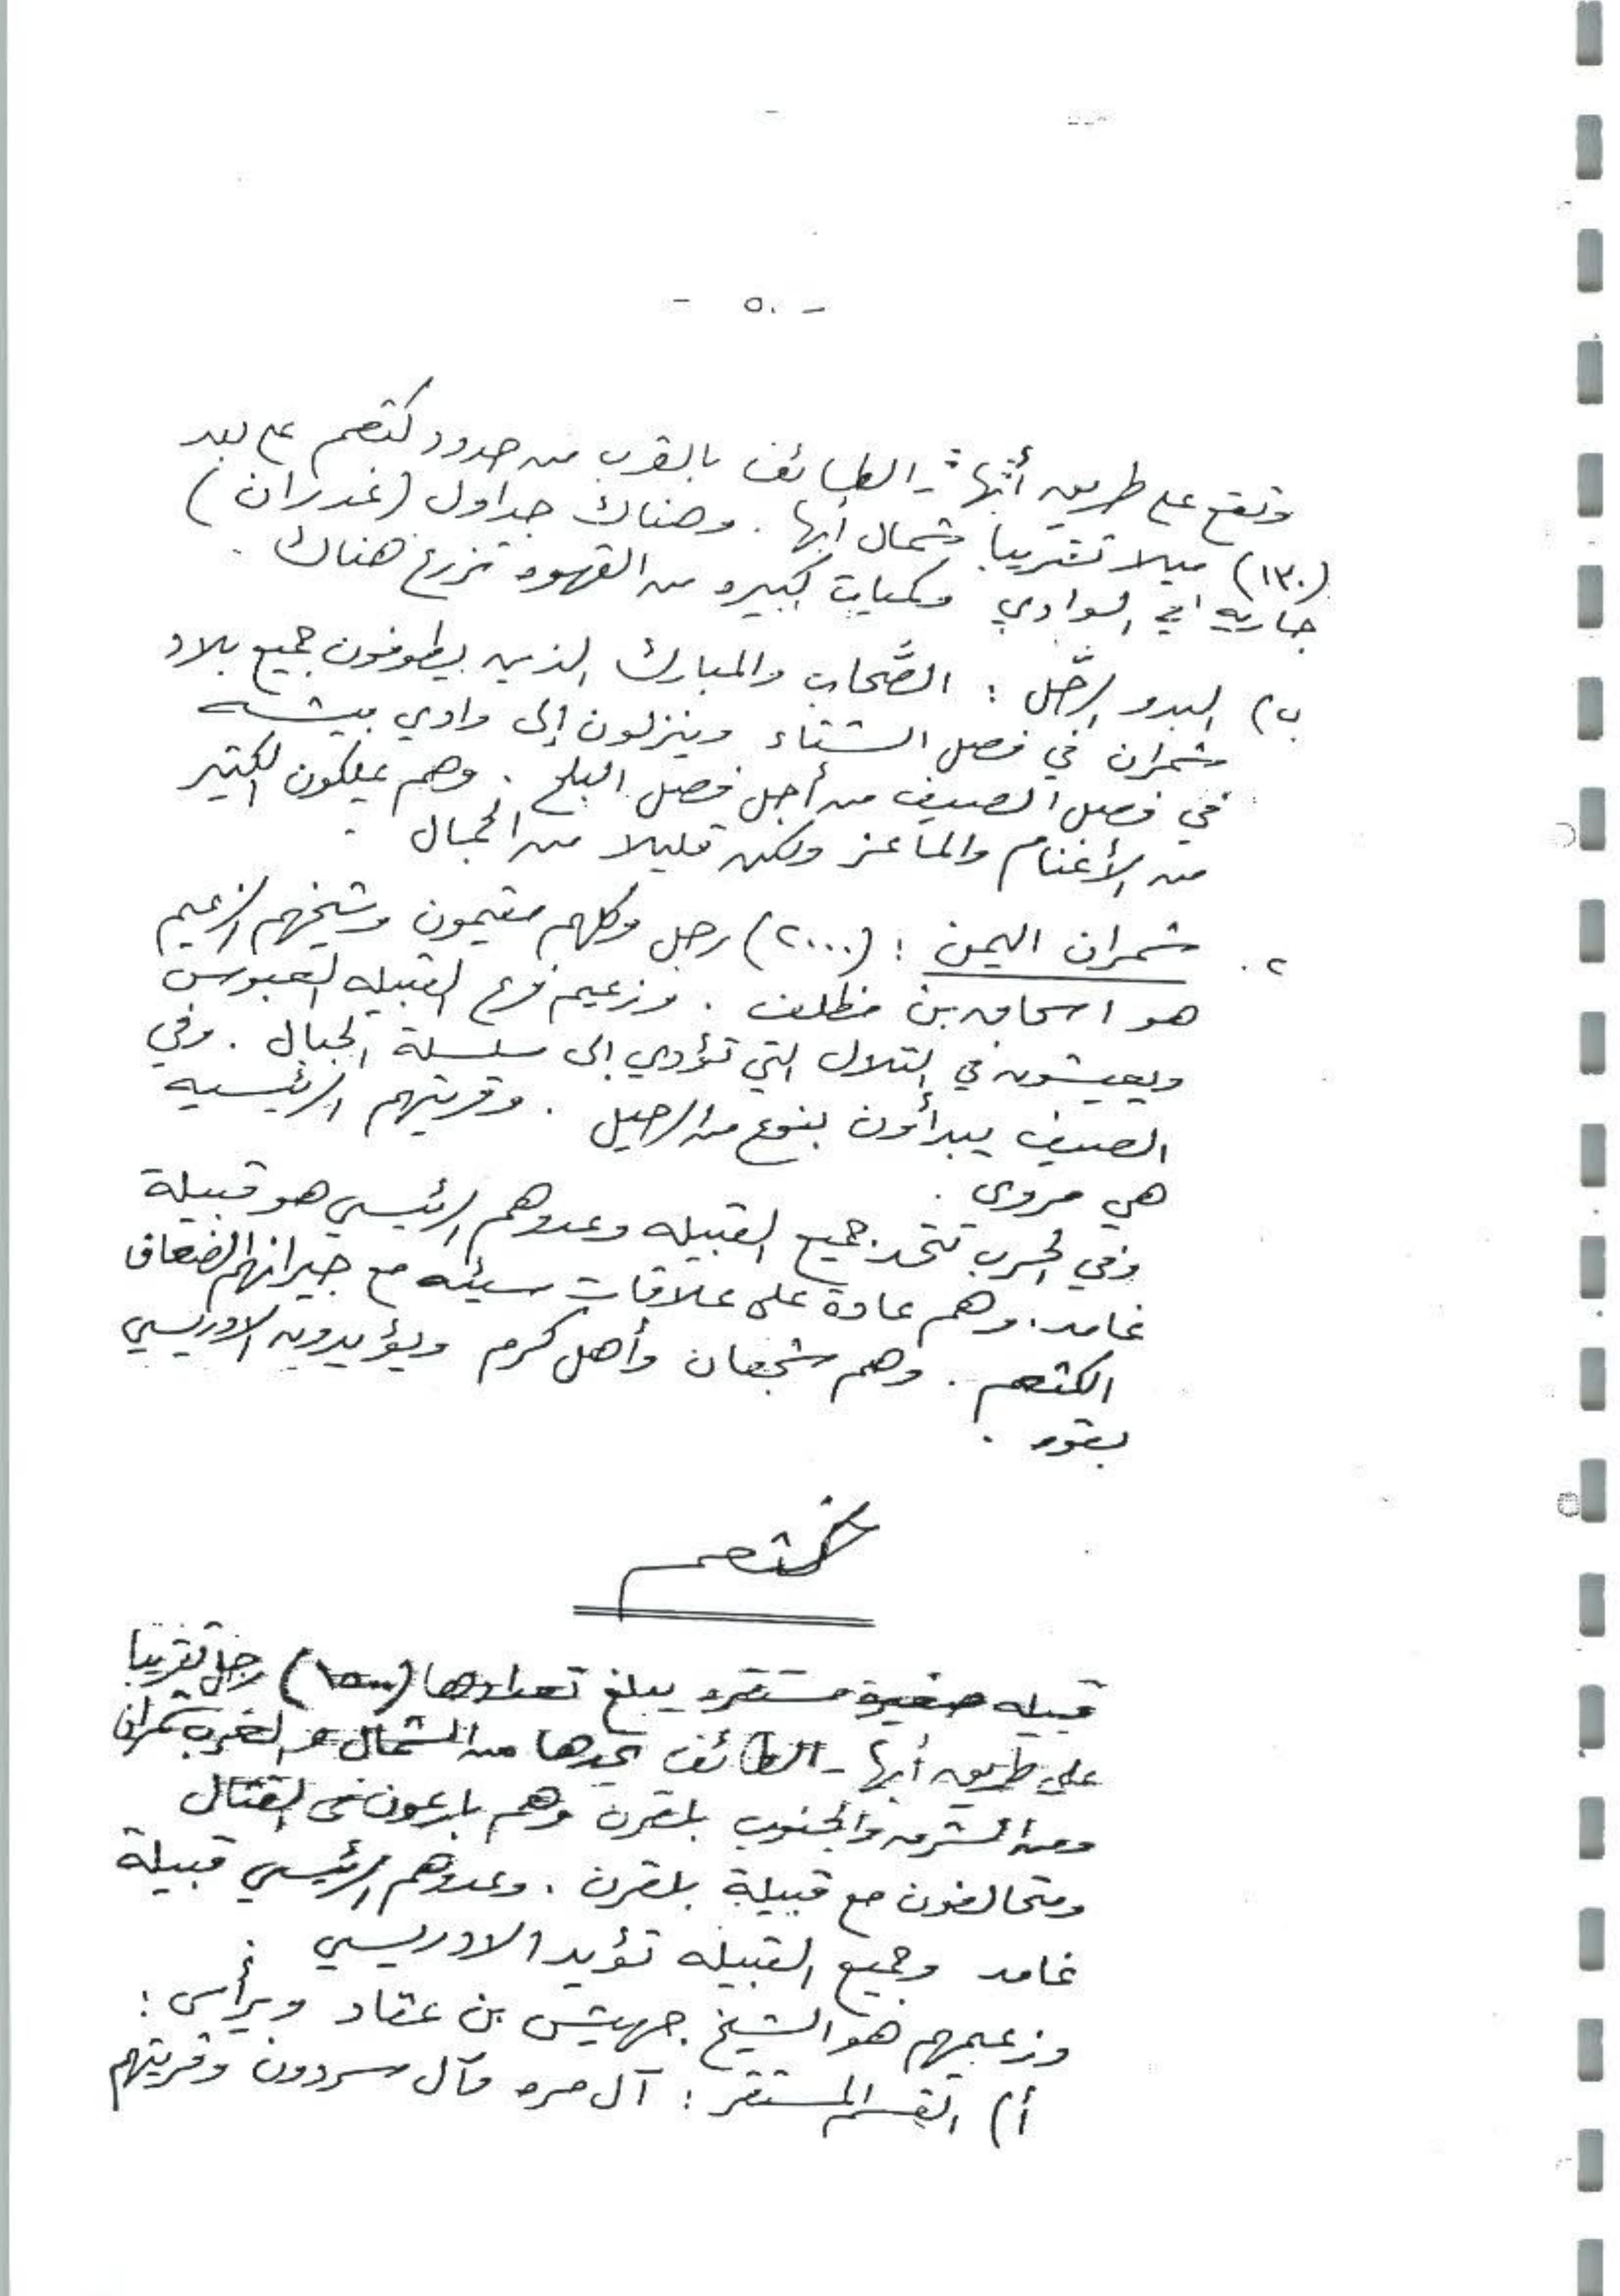 - ٥٠ -
وتقع على طريق أبها - الطائف بالقرب من حدود كثعم على بعد
(١٣٠) ميلا تقريبا شمال أبها . وهناك جداول (غدران)
جاريه في الوادي وكميات كبيره من القهوه تزرع هناك .
ب) البدو الرحَّل : الصُّحاب والمبارك الذين يطوفون جميع بلاد
شمران في فصل الشتاء وينزلون إلى وادي بيشه
في فصل الصيف من أجل فصل البلح . وهم يملكون الكثير
من الأغنام والماعز ولكن قليلا من الجمال .
٢. شمران اليمن : (٢٠٠٠) رجل وكلهم مقيمون وشيخهم الزعيم
هو اسحاق بن مظلف . وزعيم فرع القبيله العبوس
ويعيشون في التلال التي تؤدي إلى سلسلة الجبال . وفي
الصيف يبدأون بنوع من الرحيل . وقريتهم الرئيسيه
هي مروى .
وفي الحرب تتحد جميع القبيله وعدوهم الرئيسي هو قبيلة
غامد . وهم عادة على علاقات سيئه مع جيرانهم الضعاف
الكثعم . وهم شجعان وأهل كرم ويؤيدون الادريسي
بقوه .
كثعم
قبيله صغيرة مستقره يبلغ تعدادها (١٥٠٠) رجل تقريبا
على طريق أبها - الطائف يحدها من الشمال والغرب شمران
ومن الشرق والجنوب بلقرن وهم بارعون في القتال
ومتحالفون مع قبيلة بلقرن . وعدوهم الرئيسي قبيلة
غامد وجميع القبيله تؤيد الادريسي
وزعيمهم هو الشيخ جهيش بن عقاد ويرأس :
أ) القسم المستقر : آل مره وآل سردون وقريتهم